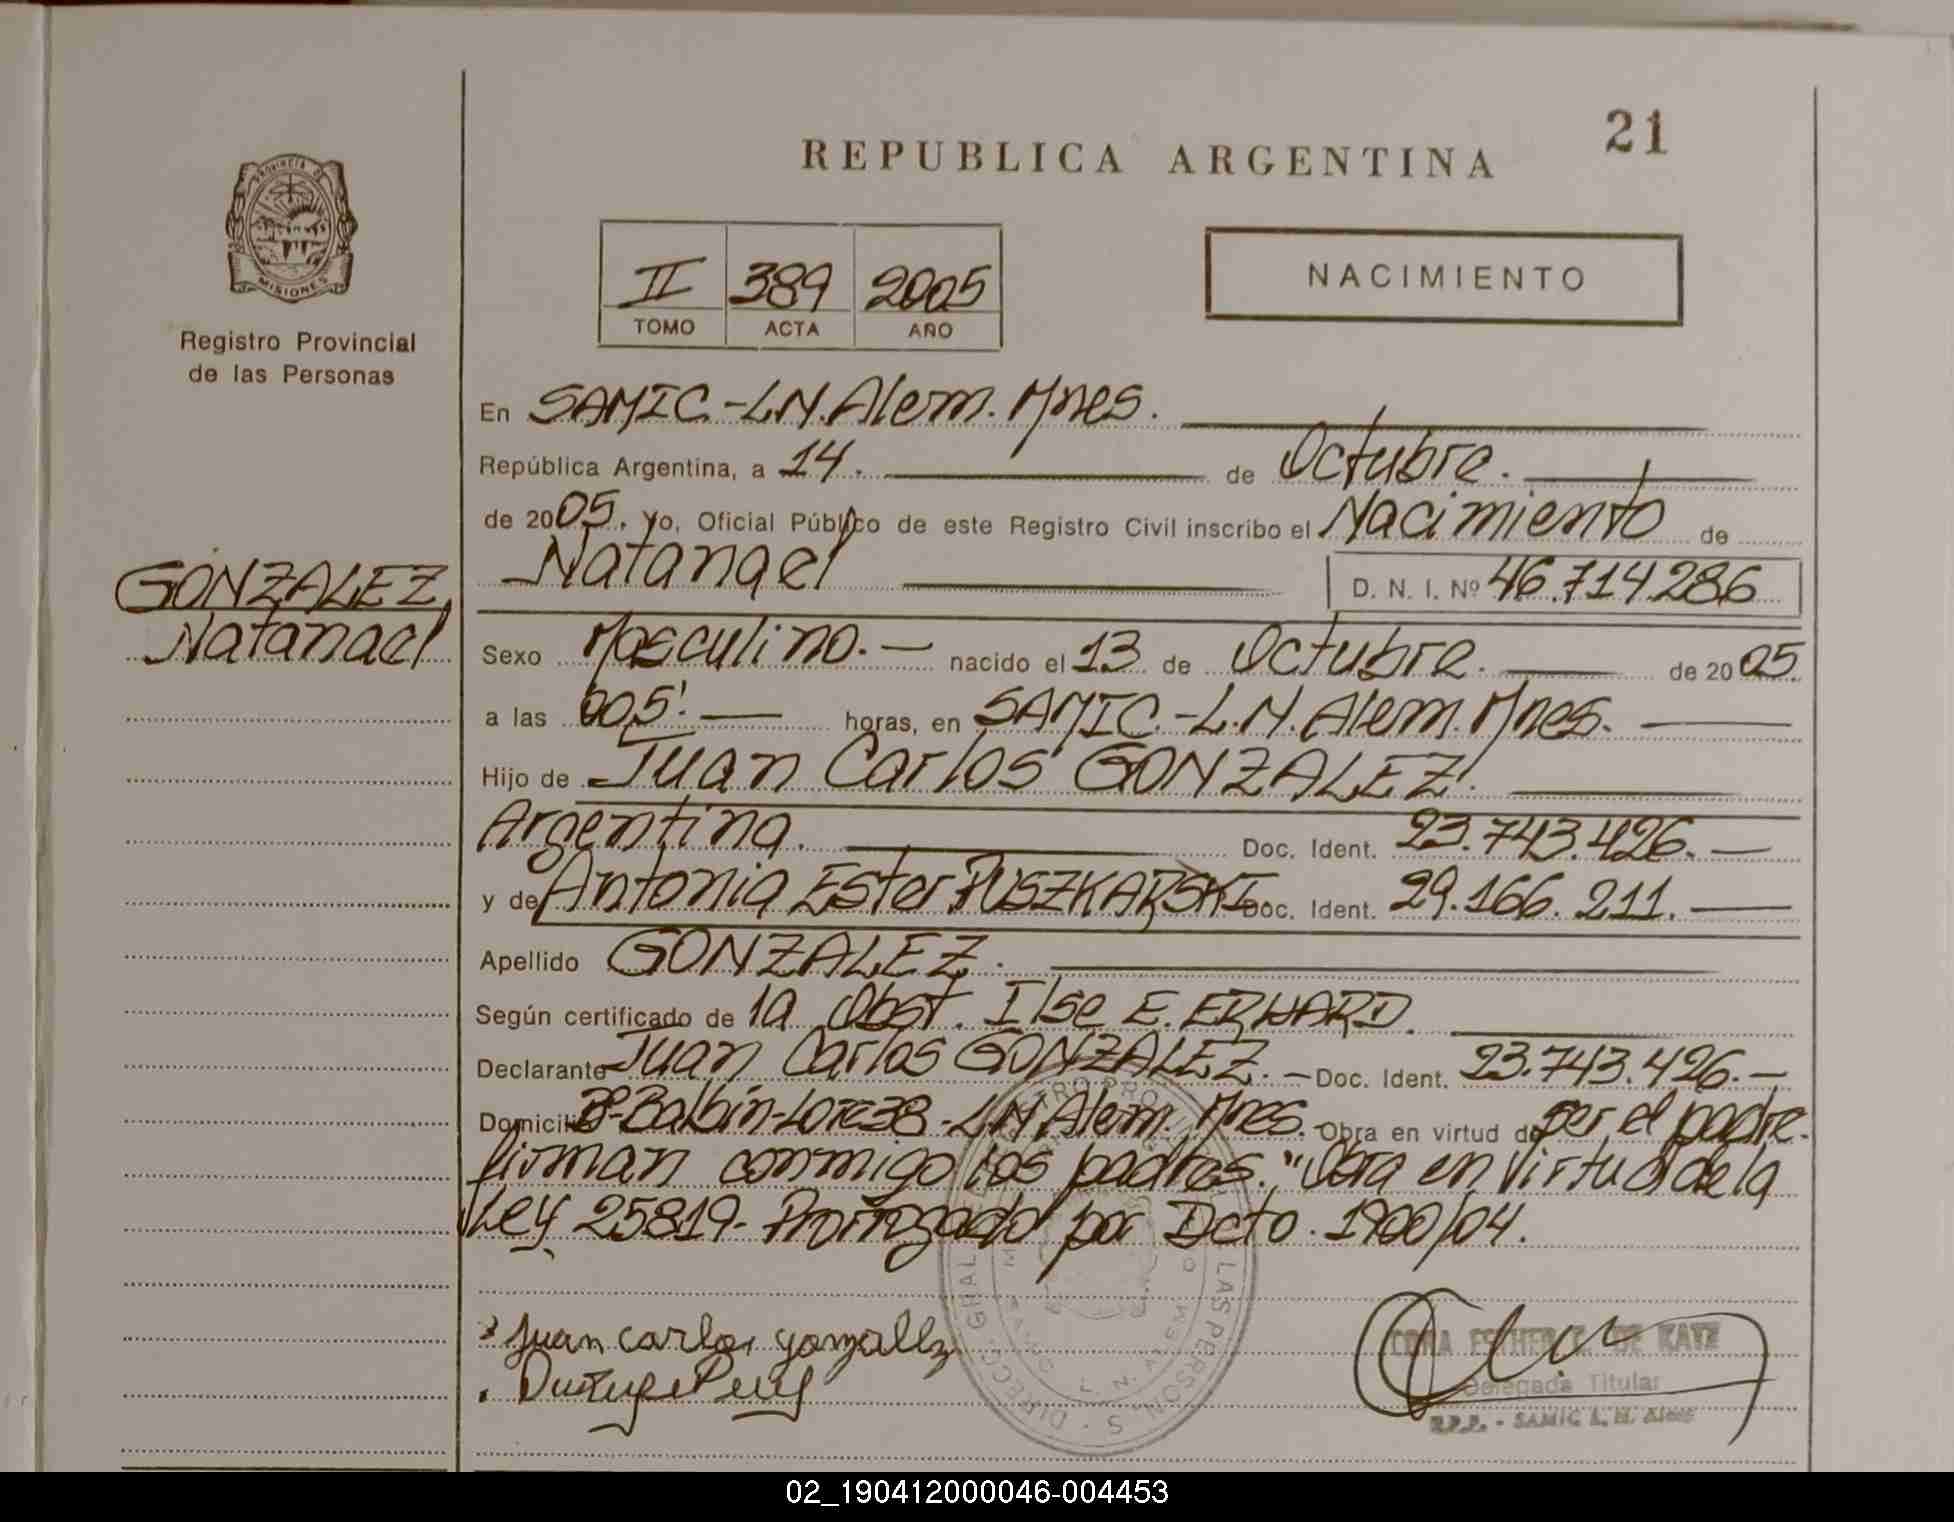 REPUBLICA ARGENTINA
21
PROVINCIA D
MISIONES
Registro Provincial
de las Personas
II 389 2005
TOMO ACTA AÑO
NACIMIENTO
En SAMIC.-L.N.Alem. Mnes.
República Argentina, a 14. de Octubre.
de 2005. Yo, Oficial Público de este Registro Civil inscribo el Nacimiento de
Natanael
D. N. I. Nº 46.714.286
GONZALEZ,
Natanael
Sexo Masculino.- nacido el 13 de Octubre. de 2005.
a las 005'. horas, en SAMIC.-L.N.Alem. Mnes.
Hijo de Juan Carlos GONZALEZ.
Argentina. Doc. Ident. 23.743.426.-
y de Antonia Ester PUSZKARSKI. Doc. Ident. 29.166.211.-
Apellido GONZALEZ.
Según certificado de la Obst. Ilse E. ERHARD.
Declarante Juan Carlos GONZALEZ.- Doc. Ident. 23.743.426.-
Domicilio Bº-Balbín-Lote38-LN Alem. Mnes. Obra en virtud de ser el padre.
firman conmigo los padres. "Obra en virtud de la
Ley 25819- Prorrogado por Dcto. 1900/04.
Juan carlos gonzalez
DIRECC. GRAL LAS PERSONAS
L. N. ALEM
DE KAYE
Delegada Titular
R.P.P. - SAMIC L. N. Alem
02_190412000046-004453